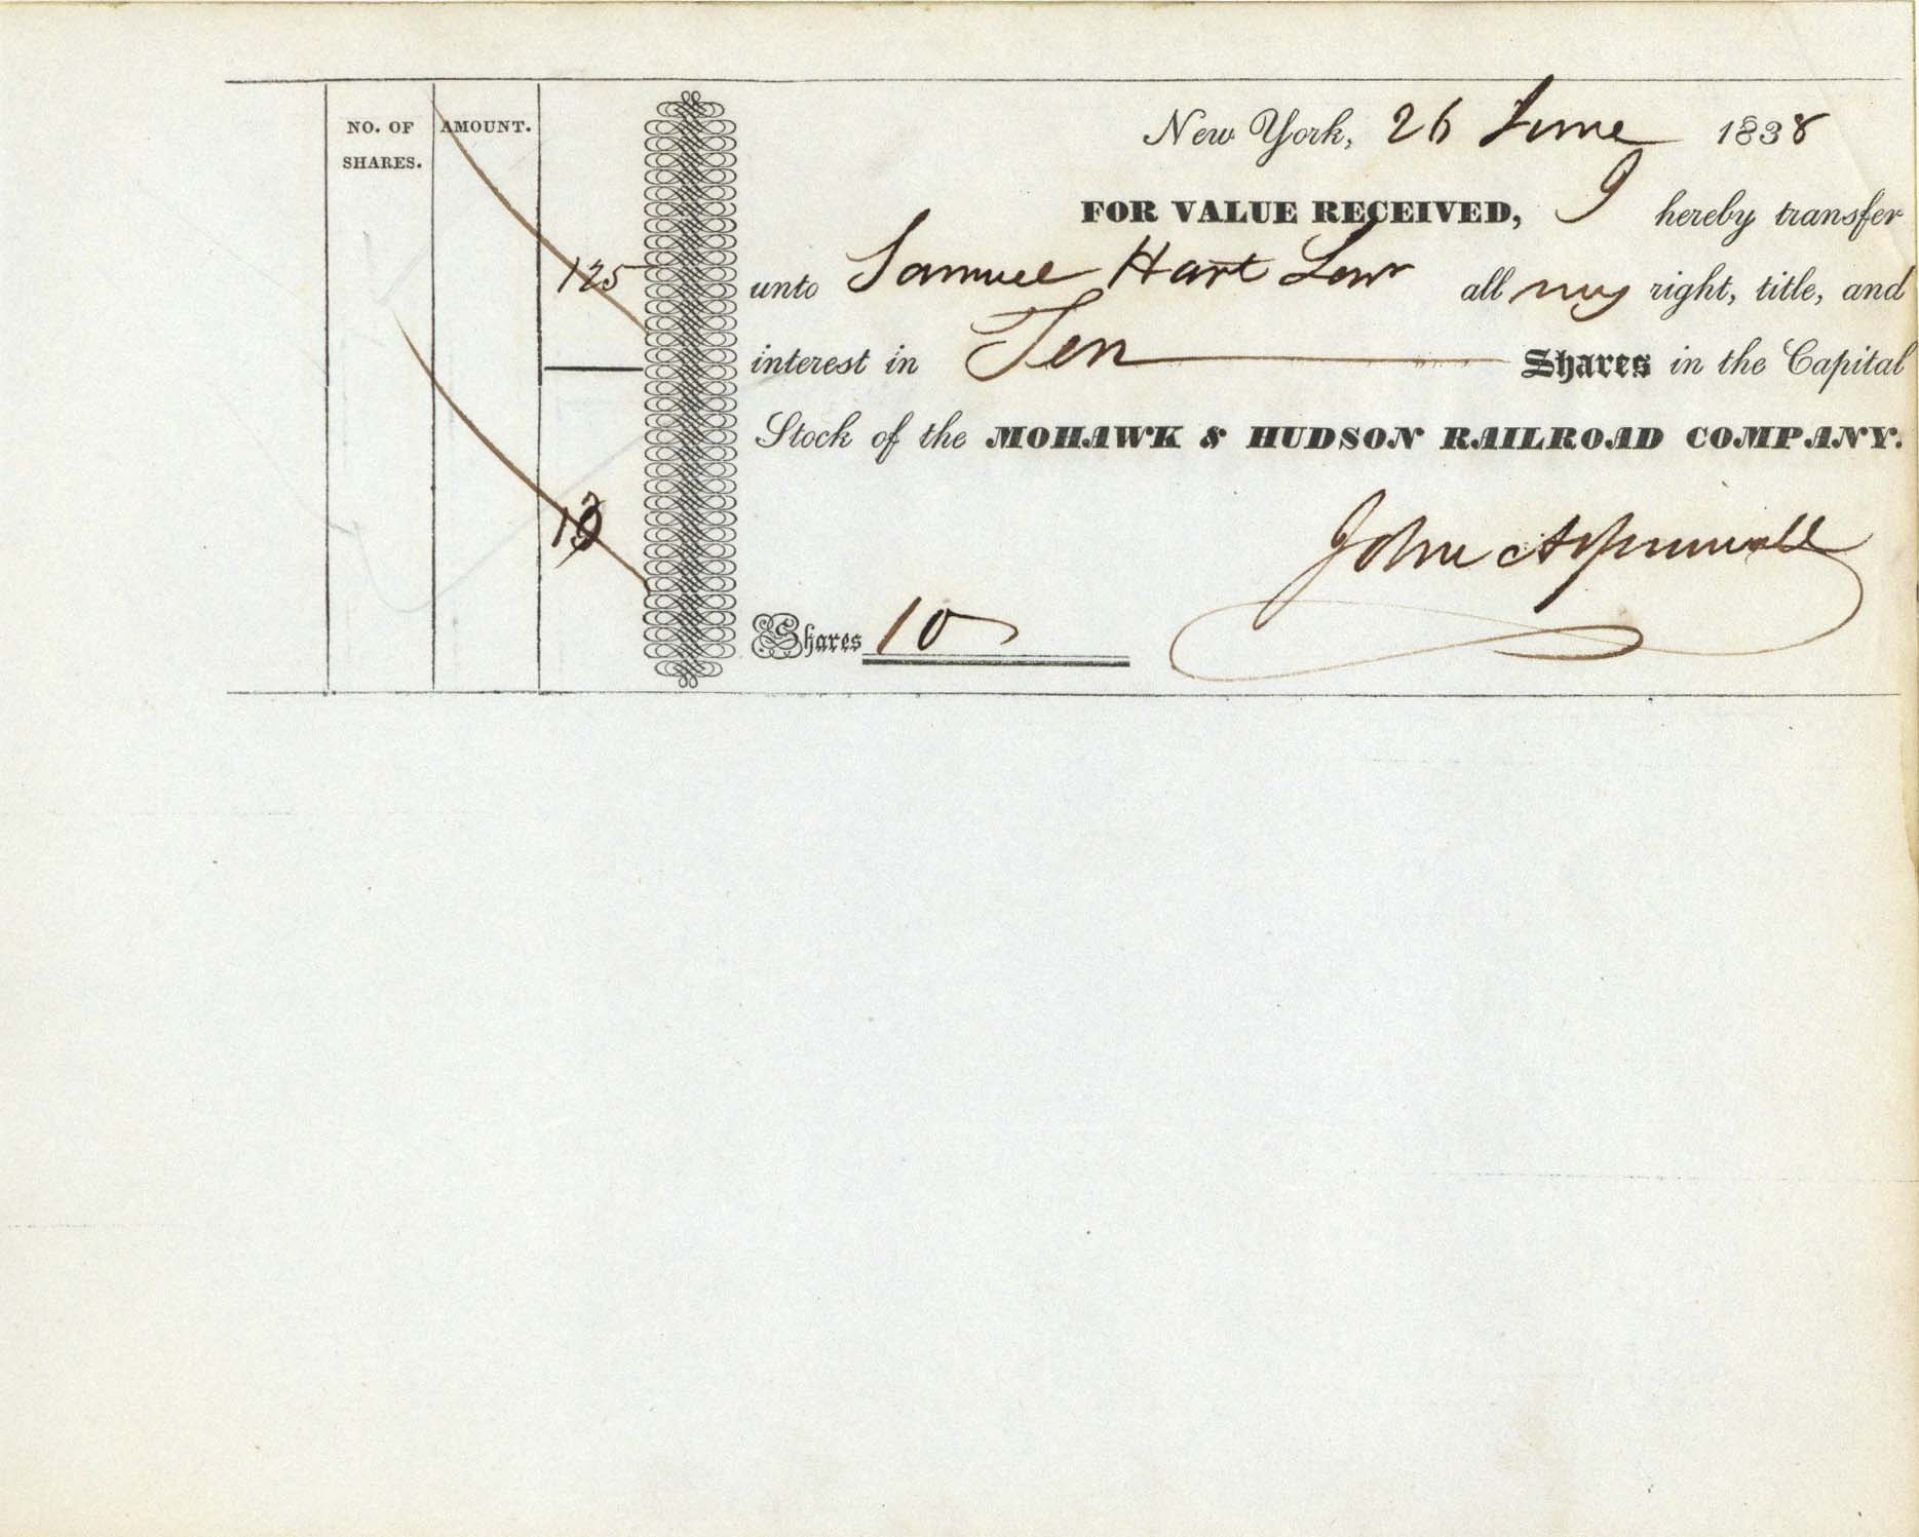 NO. OF SHARES.
AMOUNT.
125
New York, 26 June 1838
FOR VALUE RECEIVED, I hereby transfer
unto Samuel Hart Low all my right, title, and
interest in Ten Shares in the Capital
Stock of the MOHAWK & HUDSON RAILROAD COMPANY.
John Aspinwall
Shares 10